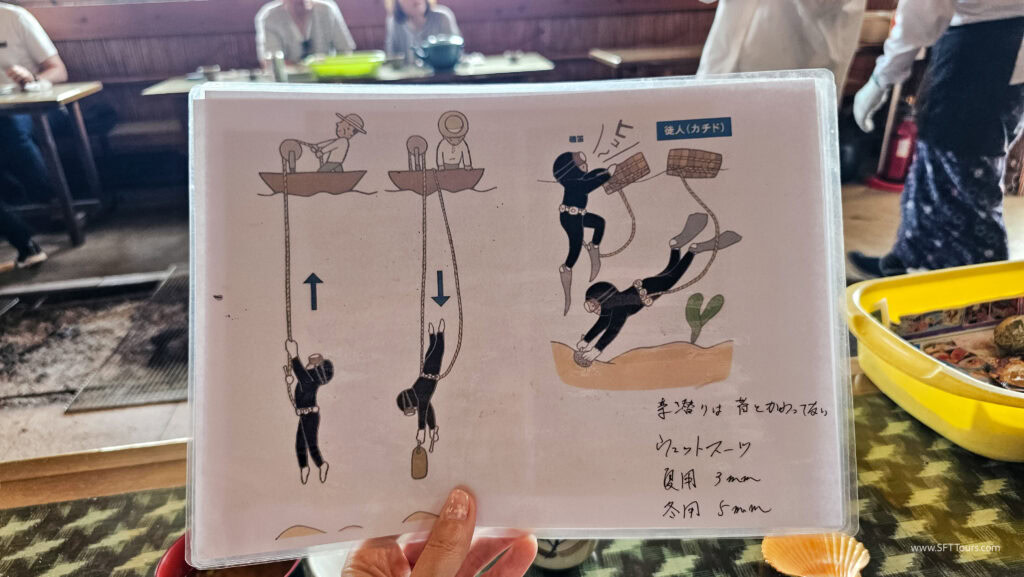 磯笛
徒人(カチド)
素潜りは 昔とかわってない
ウェットスーツ
夏用 3mm
冬用 5mm
www.SFTTours.com